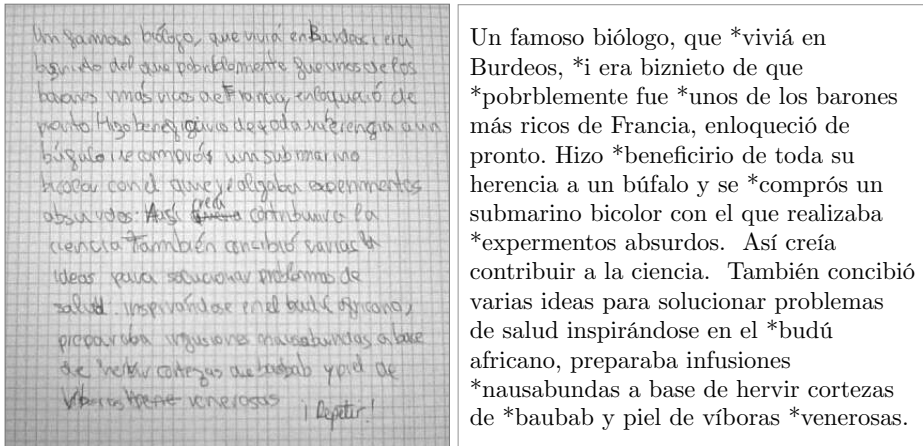 Un famoso biólogo, que viviá en Burdeos, i era
biznieto del que pobrblemente fue unos de los
barones más ricos de Francia, enloqueció de
pronto. Hizo beneficirio de toda su herencia a un
búfalo y se comprós un submarino
bicolor con el que realizaba expermentos
absurdos. Así creía contribuir a la
ciencia También concibió varias
ideas para solucionar problemas de
salud. inspirándose en el budú africano,
preparaba infusiones nausabundas a base
de hervir cortezas de baobab y piel de
víboras venerosas
¡Repetir!
Un famoso biólogo, que *viviá en
Burdeos, *i era biznieto de que
*pobrblemente fue *unos de los barones
más ricos de Francia, enloqueció de
pronto. Hizo *beneficirio de toda su
herencia a un búfalo y se *comprós un
submarino bicolor con el que realizaba
*expermentos absurdos. Así creía
contribuir a la ciencia. También concibió
varias ideas para solucionar problemas
de salud inspirándose en el *budú
africano, preparaba infusiones
*nausabundas a base de hervir cortezas
de *baubab y piel de víboras *venerosas.